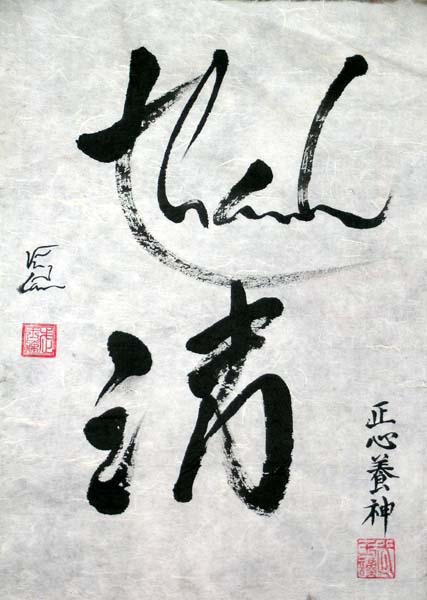 thanh
清
正心養神